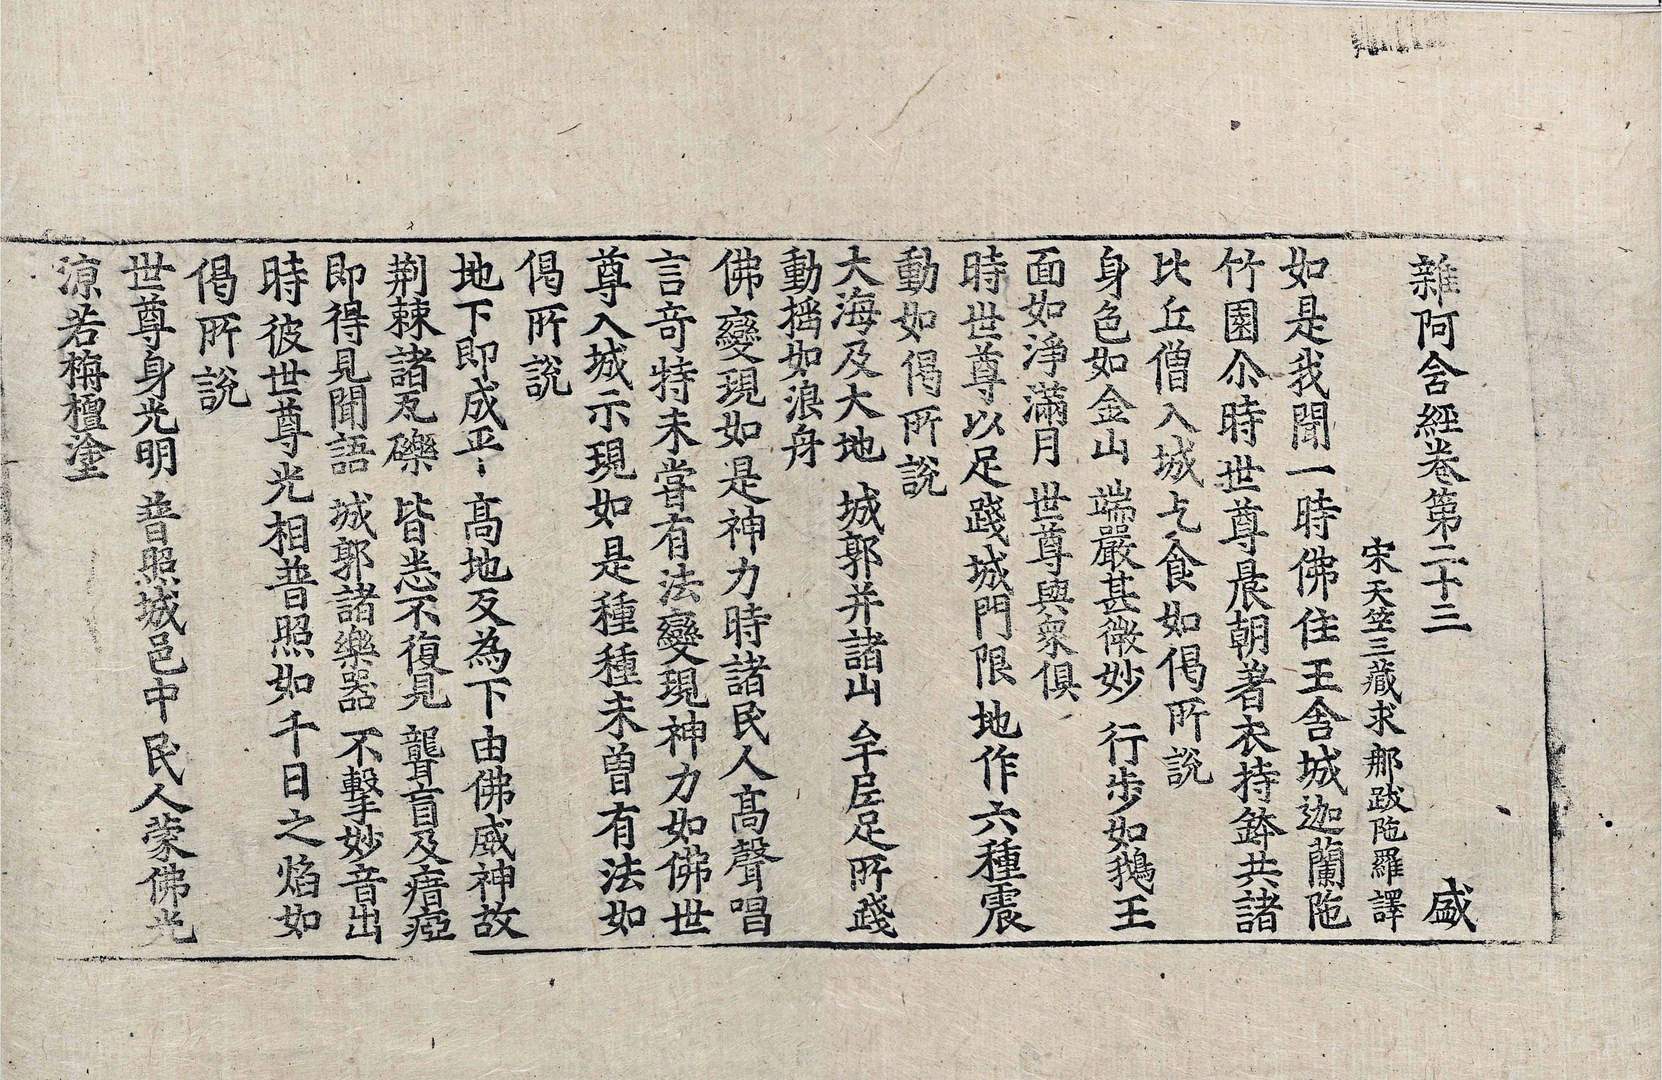 雜阿含經卷第二十三　盛
宋天竺三藏求那跋陁羅譯
如是我聞一時佛住王舍城迦蘭陁
竹園尒時世尊晨朝著衣持鉢共諸
比丘僧入城乞食如偈所說
身色如金山　端嚴甚微妙　行步如鵝王
面如淨滿月　世尊與衆俱
時世尊以足踐城門限地作六種震
動如偈所說
大海及大地　城郭并諸山　牟尼足所踐
動搖如浪舟
佛變現如是神力時諸民人高聲唱
言奇特未嘗有法變現神力如佛世
尊入城示現如是種種未曾有法如
偈所說
地下即成平　高地反為下　由佛威神故
荆棘諸瓦礫　皆悉不復見　聾盲及瘖瘂
即得見聞語　城郭諸樂器　不擊妙音出
時彼世尊光相普照如千日之焰如
偈所說
世尊身光明　普照城邑中　民人蒙佛光
涼若栴檀塗